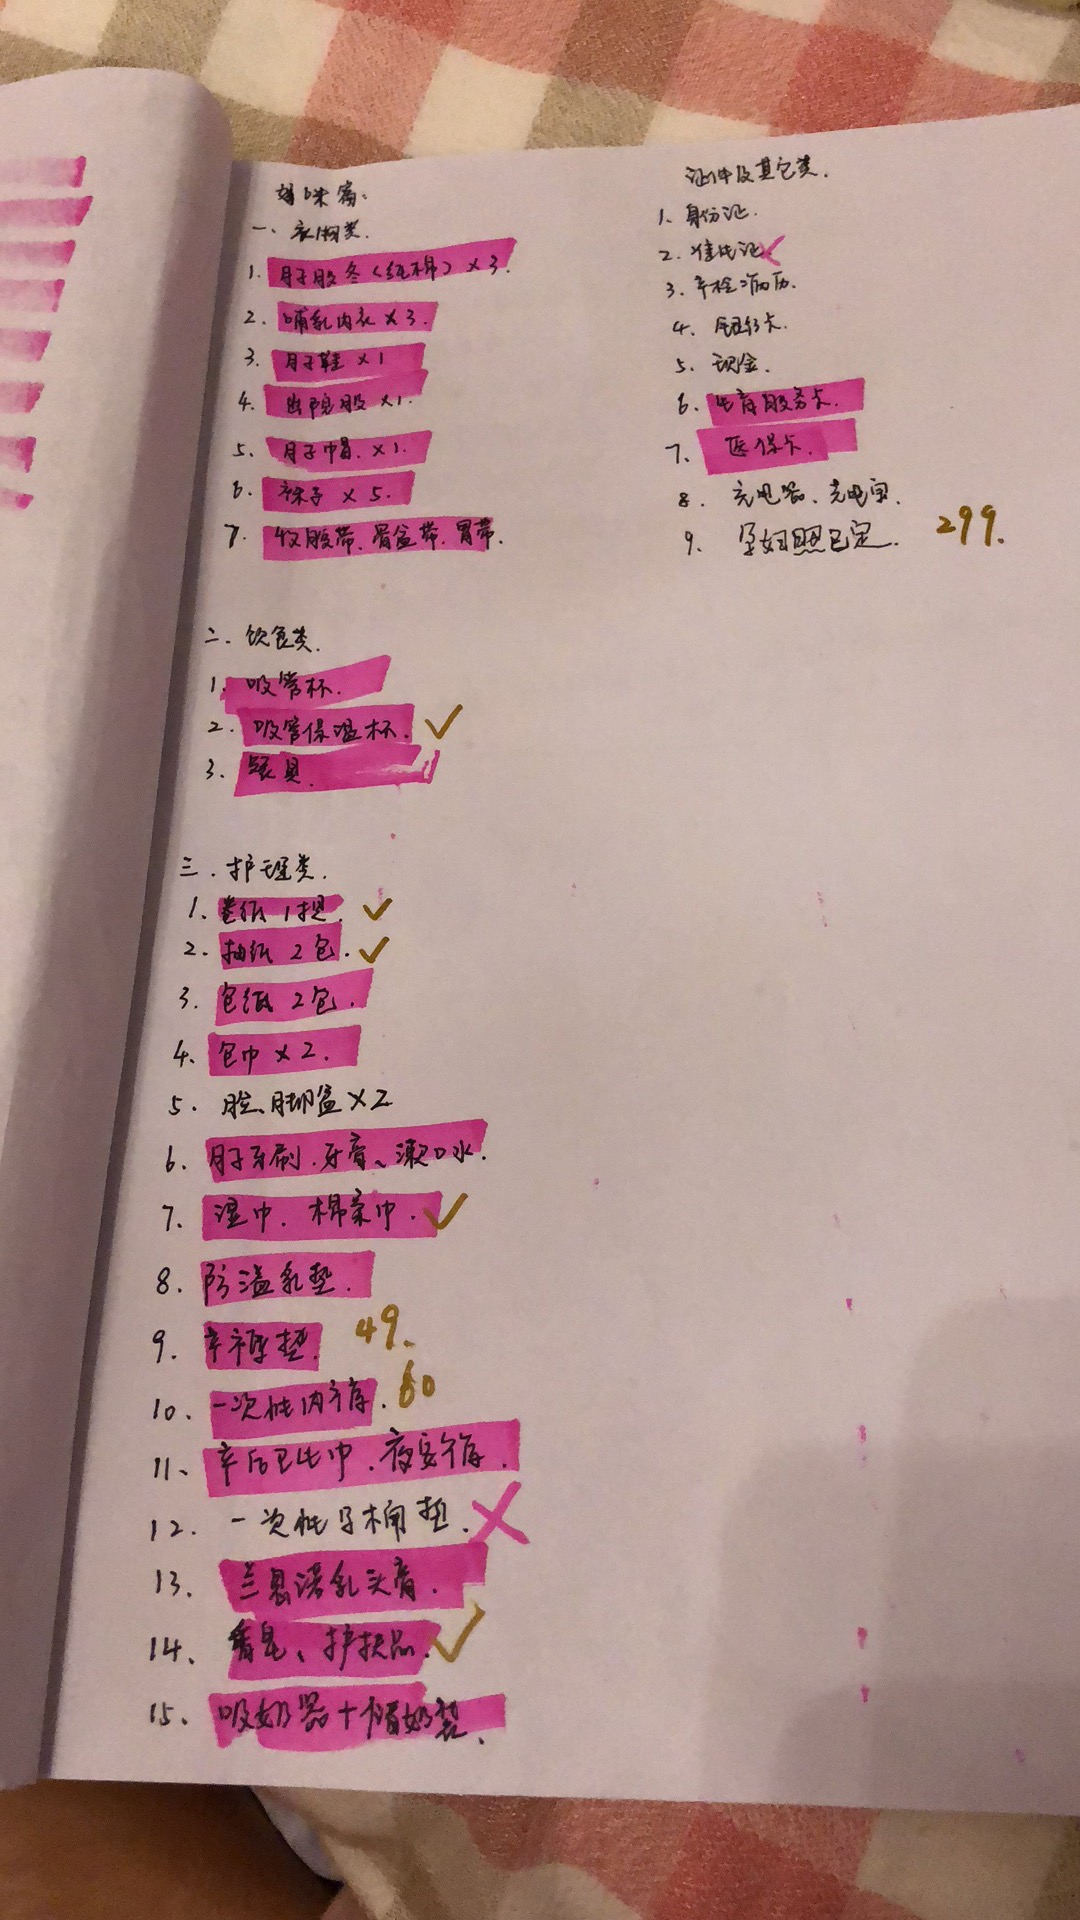 妈咪篇:
一、衣物类.
1. 月子服冬(纯棉)×3.
2. 哺乳内衣×3.
3. 月子鞋×1
4. 出院服×1.
5. 月子帽.×1.
6. 袜子×5.
7. 收腹带、骨盆带、胃带.
二.饮食类.
1. 吸管杯.
2. 吸管保温杯. ✓
3. 餐具.
三.护理类.
1. 卷纸1提. ✓
2. 抽纸2包. ✓
3. 包纸2包.
4. 包巾×2.
5. 脸、脚盆×2
6. 月子牙刷.牙膏、漱口水.
7. 湿巾、棉柔巾. ✓
8. 防溢乳垫.
9. 产褥垫. 49.
10、一次性内裤. 60
11、产后卫生巾、夜安裤.
12. 一次性马桶垫. ×
13. 兰思诺乳头膏.
14、香皂、护肤品. ✓
15、吸奶器+储奶袋.
证件及其它类.
1. 身份证.
2. 准生证×
3. 产检病历.
4. 银行卡.
5. 现金.
6. 生育服务卡.
7、医保卡.
8. 充电器、充电宝.
9、孕妇照已定. 299.